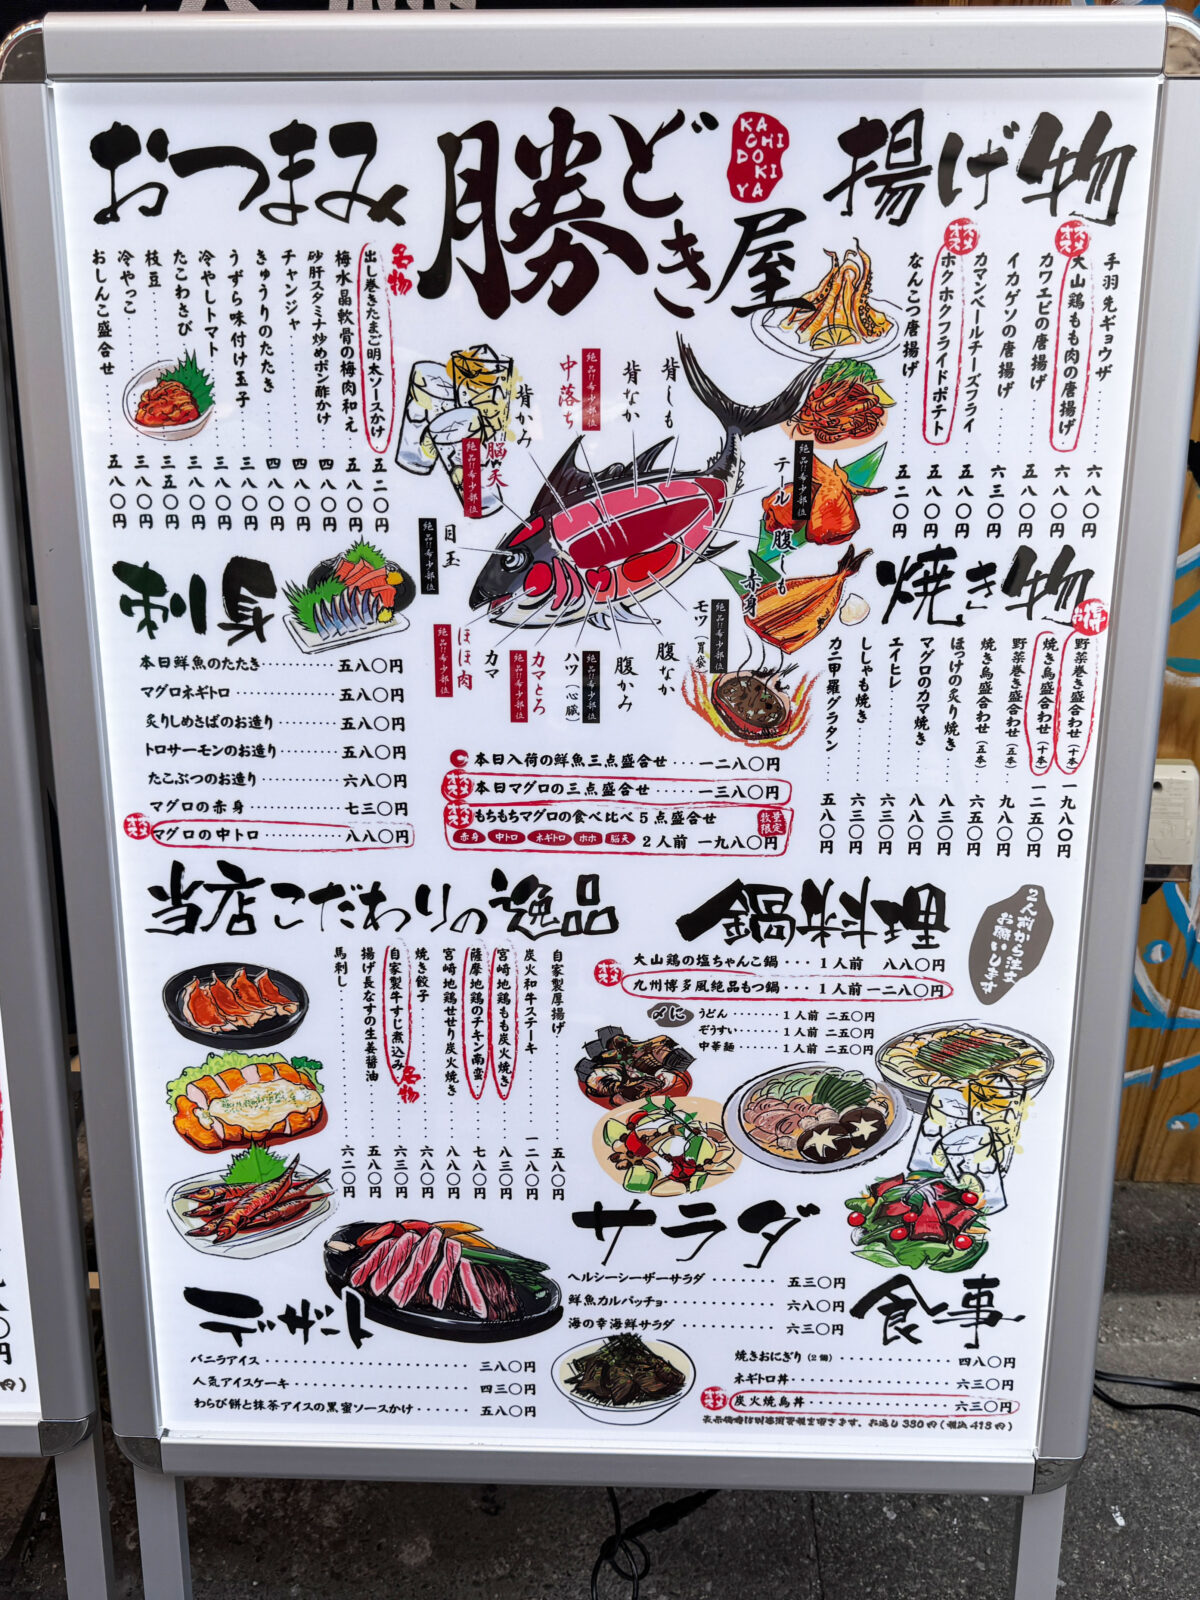 おつまみ
名物
出し巻きたまご明太ソースかけ 五二〇円
梅水晶軟骨の梅肉和え 五八〇円
砂肝スタミナ炒めポン酢かけ 四八〇円
チャンジャ 四八〇円
きゅうりのたたき 四八〇円
うずら味付け玉子 三八〇円
冷やしトマト 三八〇円
たこわさび 三五〇円
枝豆 三八〇円
冷やっこ 三八〇円
おしんこ盛合せ 五八〇円
勝どき屋
KACHIDOKIYA
揚げ物
手羽先ギョウザ 六八〇円
オススメ
大山鶏もも肉の唐揚げ 六八〇円
カワエビの唐揚げ 五八〇円
イカゲソの唐揚げ 六三〇円
カマンベールチーズフライ 五八〇円
オススメ
ホクホクフライドポテト 五八〇円
なんこつ唐揚げ 五二〇円
背しも
背なか
絶品!!希少部位
中落ち
背かみ
脳天
絶品!!希少部位
目玉
絶品!!希少部位
テール
絶品!!希少部位
腹しも
赤身
モツ（胃袋）
絶品!!希少部位
腹なか
腹かみ
ハツ（心臓）
絶品!!希少部位
カマとろ
絶品!!希少部位
カマ
ほほ肉
絶品!!希少部位
刺身
本日鮮魚のたたき 五八〇円
マグロネギトロ 五八〇円
炙りしめさばのお造り 五八〇円
トロサーモンのお造り 五八〇円
たこぶつのお造り 六八〇円
マグロの赤身 七三〇円
オススメ マグロの中トロ 八八〇円
本日入荷の鮮魚三点盛合せ 一二八〇円
オススメ 本日マグロの三点盛合せ 一三八〇円
オススメ もちもちマグロの食べ比べ５点盛合せ 数量限定
赤身 中トロ ネギトロ ホホ 脳天 2人前 一九八〇円
焼き物
お得
野菜巻き盛合わせ（十本） 一九八〇円
焼き鳥盛合わせ（十本） 一二五〇円
野菜巻き盛合わせ（五本） 九八〇円
焼き鳥盛合わせ（五本） 六五〇円
ほっけの炙り焼き 八三〇円
マグロのカマ焼き 八八〇円
エイヒレ 六三〇円
ししゃも焼き 六三〇円
カニ甲羅グラタン 五八〇円
当店こだわりの逸品
自家製厚揚げ 五八〇円
炭火和牛ステーキ 一二八〇円
宮崎地鶏もも炭火焼き 八三〇円
薩摩地鶏のチキン南蛮 七八〇円
宮崎地鶏せせり炭火焼き 八八〇円
焼き餃子 六八〇円
自家製牛すじ煮込み 六三〇円
名物
揚げ長なすの生姜醤油 五八〇円
馬刺し 六二〇円
鍋料理
2人前から注文お願いします
大山鶏の塩ちゃんこ鍋 1人前 八八〇円
オススメ 九州博多風絶品もつ鍋 1人前 一二八〇円
〆に
うどん 1人前 二五〇円
ぞうすい 1人前 二五〇円
中華麺 1人前 二五〇円
サラダ
ヘルシーシーザーサラダ 五三〇円
鮮魚カルパッチョ 六八〇円
海の幸海鮮サラダ 六三〇円
デザート
バニラアイス 三八〇円
人気アイスケーキ 四三〇円
わらび餅と抹茶アイスの黒蜜ソースかけ 五八〇円
食事
焼きおにぎり（2個） 四八〇円
ネギトロ丼 六三〇円
オススメ 炭火焼鳥丼 六三〇円
表示価格は別途消費税を頂きます。お通し380円（税込418円）